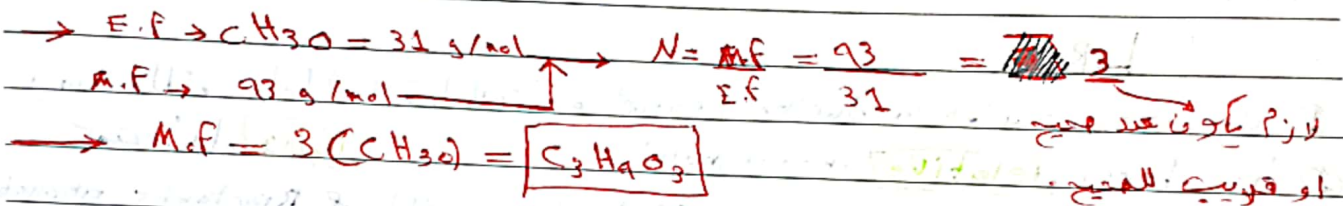 → E.f → CH3O = 31 g/mol → N = M.f / E.f = 93 / 31 = 3
M.f → 93 g/mol
لازم يكون عدد صحيح
او قريب للصحيح.
→ M.f = 3 (CH3O) = C3H9O3